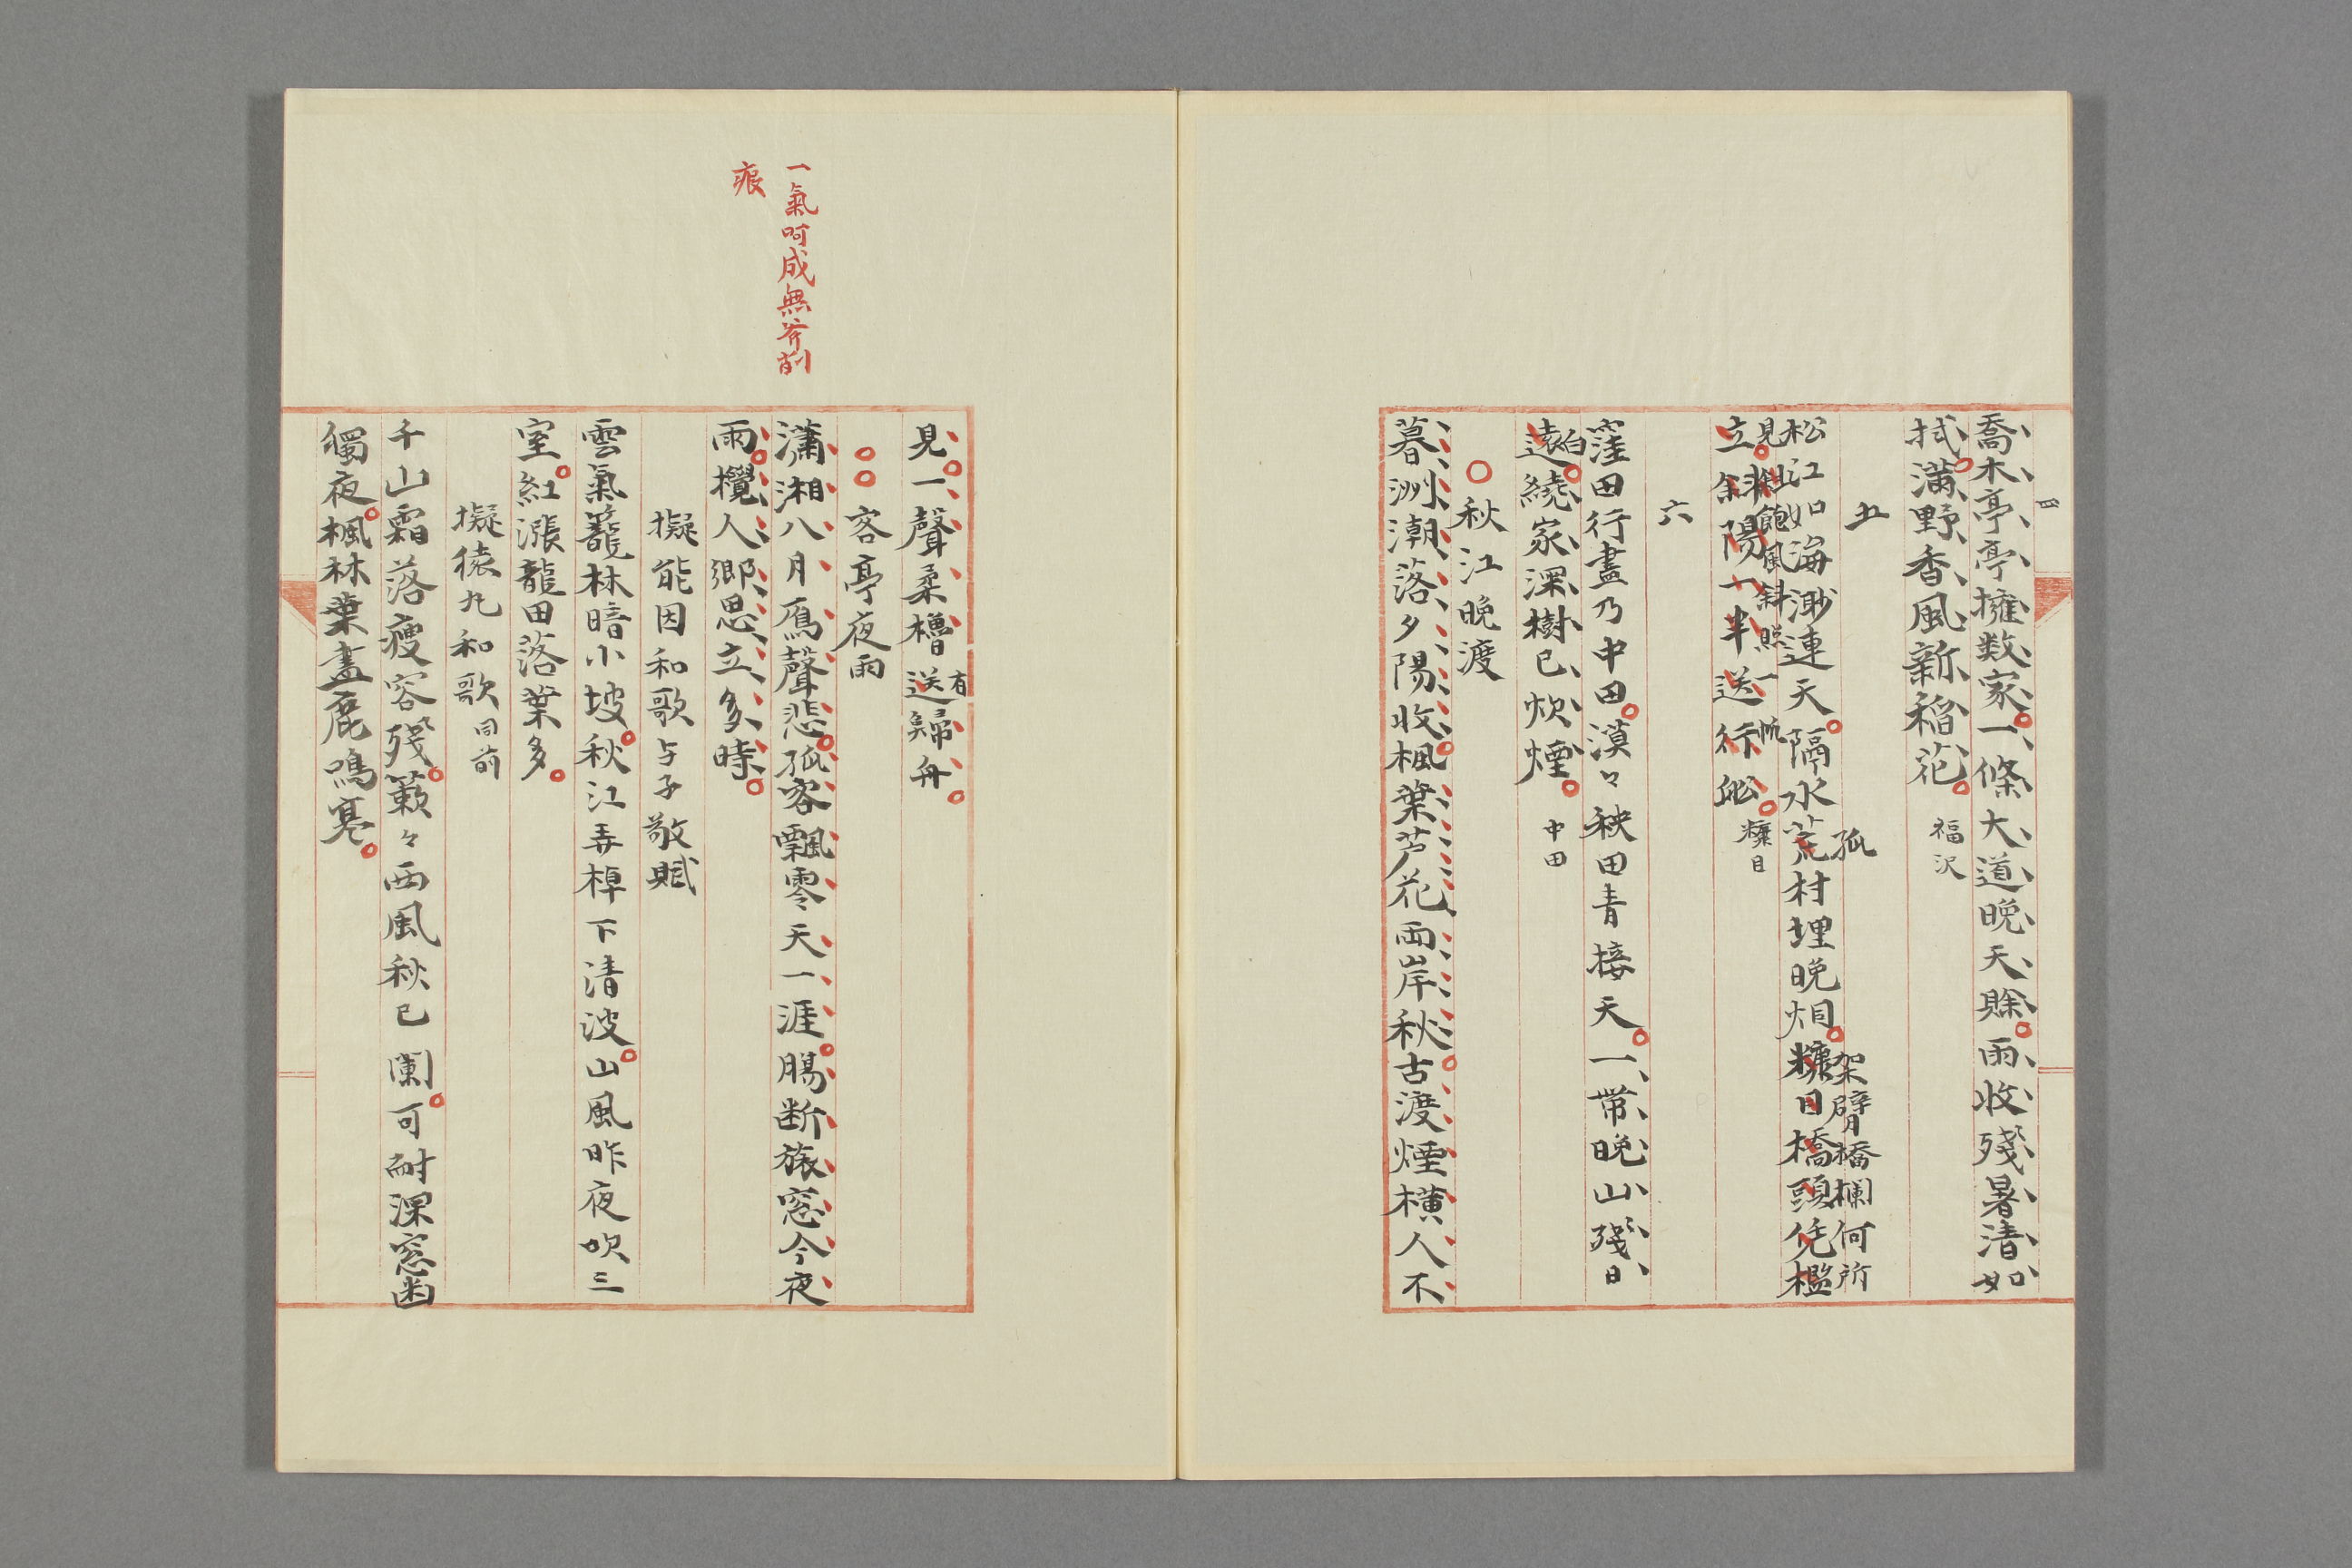 四
喬木亭亭擁数家一條大道晩天賖雨收殘暑清如
拭滿野香風新稲花 福沢
五
松江如海渺連天隔水荒村埋晩烟糠目橋頭凭檻
孤
架臂橋欄何所
立斜陽一半送行舩 糠目
見
飽風斜照一帆
六
窪田行盡乃中田漠々秧田青接天一帯晩山殘日
遠繞家深樹已炊煙 中田
白
秋江晩渡
暮洲潮落夕陽收楓葉芦花両岸秋古渡煙横人不
見一聲柔櫓送歸舟
有
客亭夜雨
瀟湘八月鴈聲悲孤客飄零天一涯腸断旅窓今夜
雨攪人郷思立多時
一氣呵成無斧削
痕
擬能因和歌与子敬賦
雲氣籠林暗小坡秋江弄棹下清波山風昨夜吹三
室紅漲龍田落葉多
擬猿丸和歌 同前
千山霜落瘦容殘蔌々西風秋已闌可耐深窓幽
獨夜楓林葉盡鹿鳴寒